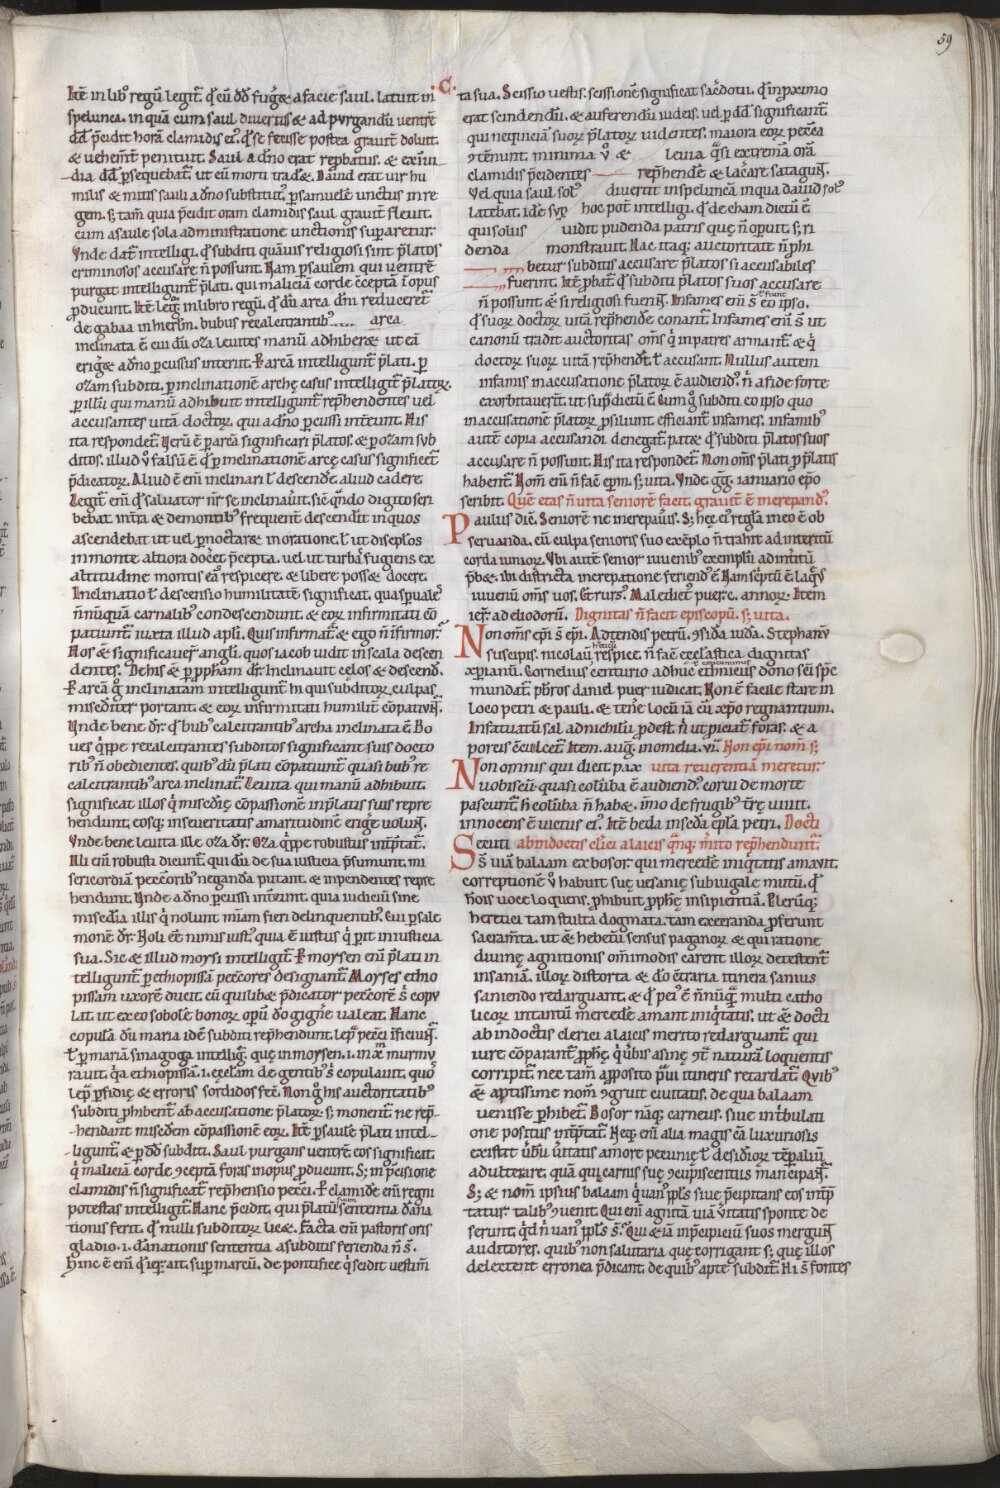 59
.C.
Itē in lib̄ regū legit᷑. q᷑ eū dd̄ fug̃et a facie saul. latuit in
spelunca. in quā cum saul divertis& ad purgandū ventrē
dd̄ p̄cidit horā clamidis ei᷒. q᷑ se fecisse postea grauit̄ doluit.
& uehem̄t penituit. Saul a dn̄o erat rep̄batus. & ex īuī
dia dd̄ p̄sequebat᷑. ut eū morti trad&. Dauid erat uir hu
milis & mitis sauli a dn̄o substitut᷒. p̱ samuelē unctus in re
gem. s; tam̄ quia p̄cidit oram clamidis saul grauit̄ fleuit.
cum a saule sola administratione unctionis supararetur.
Vnde dat᷑ intelligi. q᷑ subditi quāuis religiosi sint p̄latos
criminosos accusare n̄ possunt. Nam p̱ saulem qui ventrē
purgat intelligunt᷑ p̄lati. qui maliciā corde ɔceptā ī opus
p̱ducunt. Itē leg᷑ in libro regū. q᷑ dū area dn̄i reduceret᷑
de gabaa in hierl̄m. bubus recalcitrantib᷒ .... area
inclinata ē cui dū oza leuites manū adhiber& ut eā
erig̃& a dn̄o percussus interiit. P̱ areā intelligunt᷑ p̄lati. p̱
ozam subditi. p̱ inclinationē archę casus intelligit᷑ p̄latoꝝ.
p̱ illū qui manū adhibuit intelligunt᷑ rep̄hendentes uel
accusantes uitā doctoꝝ. qui a dn̄o p̱cussi int̄eunt. His
ita respondet᷑. Verū ē p̱ arcā significari p̄latos. & p̱ ozam sub
ditos. illud v̊ falsū ē q᷑ p̱ inclinationē arcę casus significet᷑
p̄dicatoꝝ. Aliud ē enī inclinari ł descendē. aliud cadere.
Legit᷑ enī q᷑ saluator nr̄ se inclinauit. sic q̄ndo digito scri
bebat int̄ra & de montib᷒ frequent̄ descendit in quos
ascendebat ut uel p̱noctar& in oratione. ł ut disciplos
in monte altiora doc̃et p̄cepta. uel ut turbā fugiens ex
altitudine montis eā respicere & libere poss& docere.
Inclinatio ł descensio humilitatē significat. quas p̱ualet᷑
n̄nūquā carnalib᷒ condescendunt. & eoꝝ infirmitati cō
patiunt᷑. iuxta illud apli. Quis infirmat᷑. & ego n̄ īfirmor.
Hos & significauer̄ angli. quos iacob uidit in scala descen
dentes. De his & p̱ p̱pham dr̄. Inclinauit cęlos & descend̄.
P̱ areā g̊ inclinatam intelligunt᷑ hi qui subditoꝝ culpas
misc̄dit̄er portant. & eoꝝ infirmitati humilit̄ cōpatiūt᷑.
Vnde bene dr̄. q᷑ bub᷒ calcitrantib᷒ archa inclinata ē. Bo
ues q̊ppe recalcitrantes subditos significant suis docto
rib᷒ n̄ obedientes. quib᷒ dū p̄lati cōpatiunt᷑ quasi bub᷒ re
calcitrantib᷒ area inclinat᷑. Leuita qui manū adhibuit.
significat illos q̊ misc̄dię cōpassionē in p̄latis suis repre
hendunt. eosq; in seueritatis amaritudinē erig̃e uolunt᷑.
Vnde bene leuita ille oza dr̄. Oza q̊ppe robustus int̄p̄tat᷑.
Illi enī robusti dicunt᷑. qui dū de sua iusticia p̄sumunt. mi
sericordiā peccc̄oribus neganda putant. & inpendentes repre
hendunt. Vnde a dn̄o percussi int̄eunt. quia iudiciū sine
misc̄dia illis q̊ nolunt miam fieri delinquentib᷒. Cui p̱ sale
monē dr̄. Noli eē nimis iust᷒. quia ē iustus q̊ p̱it in iusticia
sua. Sic & illud moysi intelligit᷑. P̱ moysen enī p̄lati in
telligunt᷑. p̱ ethiopissā peccc̄ores designant᷑. Moyses ethio
pissam uxorē ducit. cū quilib& p̄dicator peccc̄orē s̄ copu
lat. ut ex eo sobolē bonoꝝ opū do gign̄e ualeat. Hanc
copulā dū maria idē subditi rep̄hendunt. lep̄ pecc̄i īficiunt᷑.
ł p̱ mariā sinagoga intelligit᷑. quę in moysen .i. in xm̄ murmu
rauit. q̊a ethiopissā .i. ecc̄lam de gentib᷒ s̄ copulauit. quo
lep̄ p̱fidię & erroris sordidos fec̄. Non g̊ his auctoritatib᷒
subditi p̱hibent᷑ ab accusatione p̄latoꝝ. s; monent᷑ ne rep̄-
hendant misc̄dem cōpassionē eoꝝ. Itē p̱ saule p̄lati intel-
ligunt᷑ & p̱ dd̄ subditi. Saul purgans ventrē eos significat.
q̊ maliciā corde ɔceptā foras in opus p̱ducunt. S; in p̄cisione
clamidis n̄ significat᷑ rep̄hensio pecc̄i. P̱ clamidē enī regni
potestas intelligit᷑. Hanc p̄cidit. qui p̄latū sententia dāna
tionis ferit. q᷑ nulli subditoꝝ lic&. Facta enī pastoris oris
gladio .i. dānationis sententia a subditis ferienda n̄ s̄.
Hinc ē enī q᷑ ier̄. ait. sup̱ marcū. de pontifice q̊ scidit vestim̄
ta sua. Scissio vestis. scissionē significat sac̄dotii. q᷑ in p̱ximo
erat scindendū. & auferendū iudeis. vel p̱ dd̄ significant᷑
qui nequiciā suoꝝ p̄latoꝝ uidentes. maiora eoꝝ pecc̄a
ɔtēnunt. minima v̊ & leuia q̊si extremā orā
clamidis p̄cidentes rep̄hendē & lac̃are satagunt᷑.
Vel quia saul sol᷒ diuertit in speluncā in qua dauid sol᷒
latebat. idē sup̱ hoc pot᷑ intelligi. q᷑ de cham dictū ē
qui solus uidit pudenda patris quę n̄ opuit s; ri
denda monstrauit. Hac itaq; auctoritate n̄ p̱hi
bētur subditis accusare p̄latos si accusabiles
fuerint. Itē p̱bat᷑ q᷑ subditi p̄latos suos accusare
n̄ possunt & si religiosi fuerint᷑. Infames enī s̄ eo ipso.
q᷑ suoꝝ doctoꝝ uitā rep̄hendē conant᷑. Infames enī s̄ ut
canonū tradit auctoritas om̄s q̊ in patres armant᷑ & q̊
doctoꝝ suoꝝ uitā rep̄hendt ł accusant. Nullus autem
infamis in accusatione p̄latoꝝ ē audiend᷒. n̊ a fide forte
exorbitauerit᷑. ut supdictū ē. Cum g̊ subditi eo ipso quo
in accusationē p̄latoꝝ p̱siliunt efficiant᷑ infames. infamib᷒
autē copia accusandi denegat᷑. patet q᷑ subditi p̄latos suos
accusare n̄ possunt. His ita respondet᷑. Non om̄s p̄lati p̱ p̄latis
habent᷑. Nom̄ enī n̄ fac̄ epm̄. s; uita. Vnde gg̃. ianuario epō
scribit. Quē etas n̄ uita seniorē facit. grauit̄ ē increpand᷒.
Paulus dic̄. Seniorē ne increpau̾is. S; hęc ei᷒ regl̄a in eo ē ob
seruanda. cū culpa senioris suo exēplo n̄ trahit ad interitū
corda iunioꝝ. Vbi autē senior iuuenib᷒ exemplū ad int̄itū
p̄b&. ibi districta increpatione feriend᷒ ē. Nam sc̄ptū ē laq̊us
iuuenū om̄s uos. Et rurs᷒. Maledict᷒ puer .c. annoꝝ. Item
ier̄. ad eliodorū. Dignitas n̄ facit episcopū. s; uita.
Non om̄s epī s̄ epī. Adtendis petrū. ɔsidā iudā. Stephanū
suscipis. nicolaū respice. n̄ fac̄ ecclastica dignitas
xp̄ianū. Cornelius centurio adhuc ethnicus dono sc̄i sp̄c
mundat᷑. p̄bros daniel puer iudicat. Non ē facile stare in
loco petri & pauli. & tenē locū iā cū xp̄o regnantium.
Infatuatū sal ad nichilū p̱dest. n̊ ut p̱iciat᷑ foras. & a
porcis ɔculcet᷑. Item. aug᷒. in omelia .vi. Non epī nom̄ s;
Non omnis qui dicit pax uita reuerentiā meretur.
uobiscū. quasi colūba ē audiend᷒. corui de morte
pascunt᷑. h̄ colūba n̄ hab&. immo de frugib᷒ t̄rę uiuit.
innocens ē uictus ei᷒. Itē beda in sc̄da epl̄a petri. Docti
Secuti ab indoctis cl̄ici a laicis q̊nq; m̄ito rep̄hendunt᷑.
s̄ uiā balaam ex bosor. qui mercedē iniq̊tatis amauit.
correptionē v̊ habuit suę uesanię subiugale mutū. q᷑
hōis uoce loquens. p̱hibuit p̱phę insipientiā. Plerūq;
heretici tam stulta dogmata. tam execranda p̱ferunt
sacram̄ta. ut & hebetū sensus paganoꝝ & qui ratione
diuinę agnitionis om̄imodis carent illoꝝ detestent᷑
insaniā. illoꝝ distorta & dō ɔtraria. itinera sanius
saniendo redarguant. & q᷑ pei᷒ ē n̄nūq̊ multi catho
licoꝝ in tantū mercedē amant iniq̊tatis. ut & docti
ab indoctis clerici a laicis merito redarguant᷑. qui
iure cōparant᷑ p̱phę. q̊ uerbis asinę ɔt᷑ naturā loquentis
corripit᷑. nec tam̄ a p̱posito p̱ui itineris retardat᷑. Quib᷒
& aptissime nom̄ ɔgruit ciuitatis. de qua balaam
uenisse p̱hibet᷑. Bosor nāq; carneus. siue in t̄bulati
one positus int̄p̄tat᷑. Neq; enī alia magis eā luxuriosis
existit ūbū ūitatis amore pecunię ł desidioꝝ tēp̱aliū
adulterare. quā qui carnis suę ɔcup̄iscentiis mancipant᷑.
S; & nom̄ ipsius balaam q̊ uan᷒ pp̄ls siue p̄cipitans eos int̄p̄
tatur talib᷒ ɔuenit. Qui enī agnitā uiā ūitatis sponte de
serunt. q̊d n̊ uan᷒ pp̄ls s̄. Qui & iā in p̄cipiciū suos mergunt᷑
auditores. quib᷒ non salutaria que corrigant s; quę illos
delectent erronea p̄dicant. de quib᷒ apte subdit᷑. Hi s̄ fontes